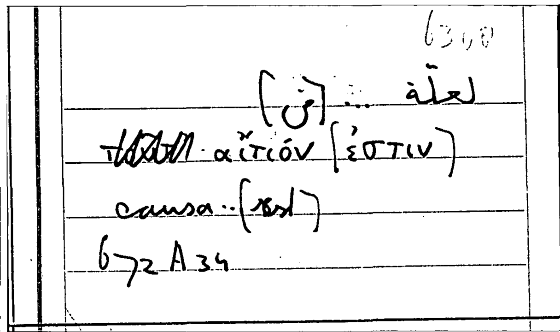 لعلّة ... [في]
αἴτιόν [ἐστιν]
causa..[est]
672 A 34